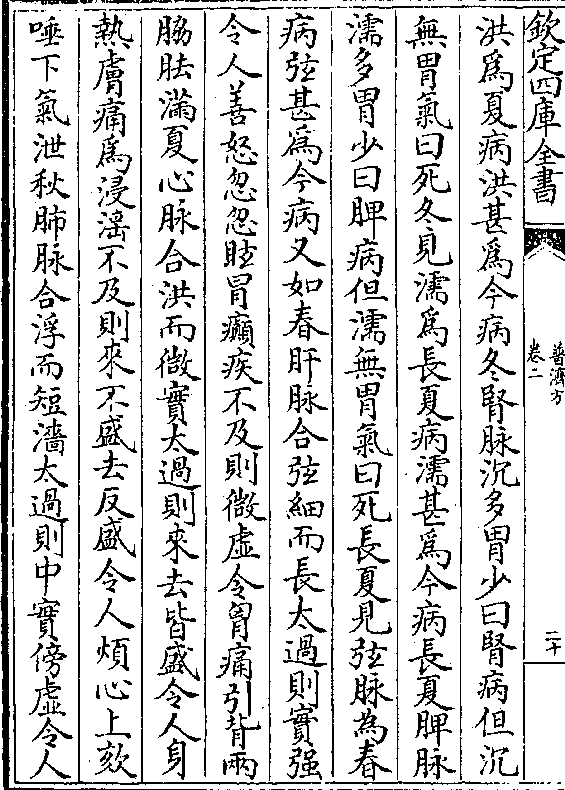 欽定四庫全書
普濟方
卷二
二十
洪爲夏病洪甚爲今病冬腎脉沉多胃少曰腎病但沉
無胃氣曰死冬見濡爲長夏病濡甚爲今病長夏脾脉
濡多胃少曰脾病但濡無胃氣曰死長夏見弦脉為春
病弦甚爲今病又如春肝脉合弦細而長太過則實强
令人善怒忽忽眩冐癲疾不及則微虛令胷痛引背兩
脇胠滿夏心脉合洪而微實太過則來去皆盛令人身
熱膚痛爲浸滛不及則來不盛去反盛令人煩心上欬
唾下氣泄秋肺脉合浮而短濇太過則中實傍虛令人